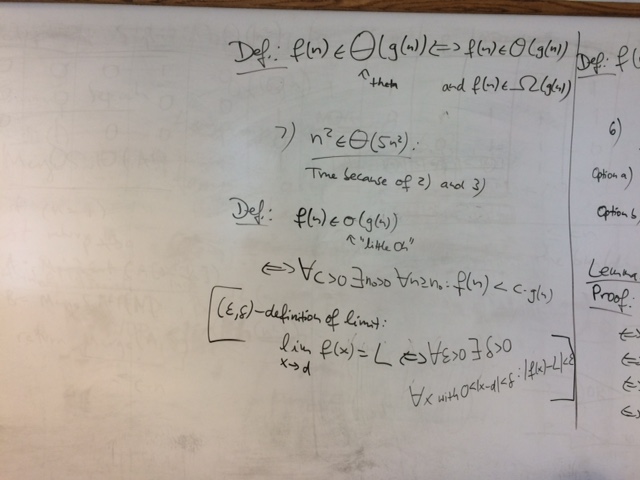 Def.: f(n) ∈ Θ(g(n)) ⇔ f(n) ∈ O(g(n))
↑ theta and f(n) ∈ Ω(g(n))
7) n² ∈ Θ(5n²):
True because of 2) and 3)
Def.: f(n) ∈ o(g(n))
↑ "little Oh"
⇔ ∀c>0 ∃n₀>0 ∀n≥n₀: f(n) < c·g(n)
[(ε,δ)-definition of limit:
lim x→d f(x) = L ⇔ ∀ε>0 ∃δ>0
∀x with 0<|x-d|<δ: |f(x)-L|<ε]
Def: f(
6)
Option a)
Option b)
Lemma
Proof:
⇔
⇔
⇔
⇔